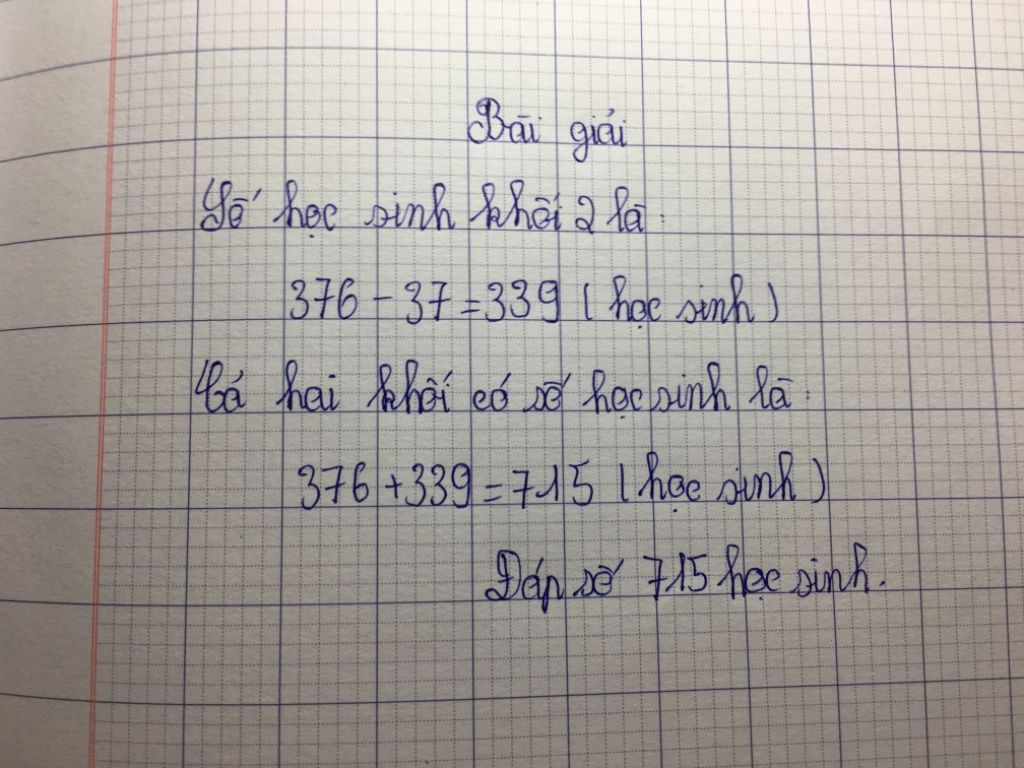 Bài giải
Số học sinh khối 2 là:
376 - 37 = 339 ( học sinh )
Cả hai khối có số học sinh là:
376 + 339 = 715 ( học sinh )
Đáp số 715 học sinh.